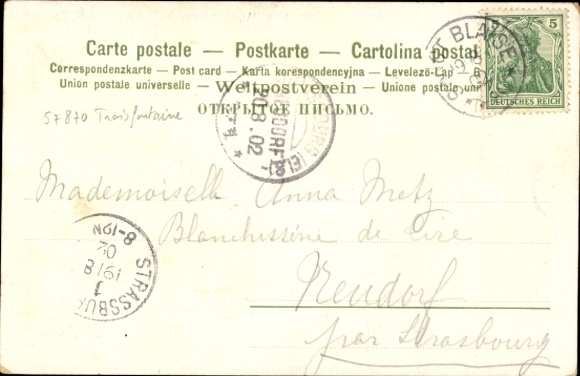 Carte postale — Postkarte — Cartolina postal
Correspondenzkarte — Post card — Karta korespondencyjna — Levelező-Lap
Union postale universelle — Weltpostverein — Unione postale un
ОТКРЫТОЕ ПИСЬМО.
5
DEUTSCHES REICH
ST BLAISE
57870 Troisfontaine
DORF
20.8.02
Mademoiselle Anna Metz
Blanchisserie de Cire
Neudorf
par Strasbourg
STRASSBU
1
19/8
02
8-19N